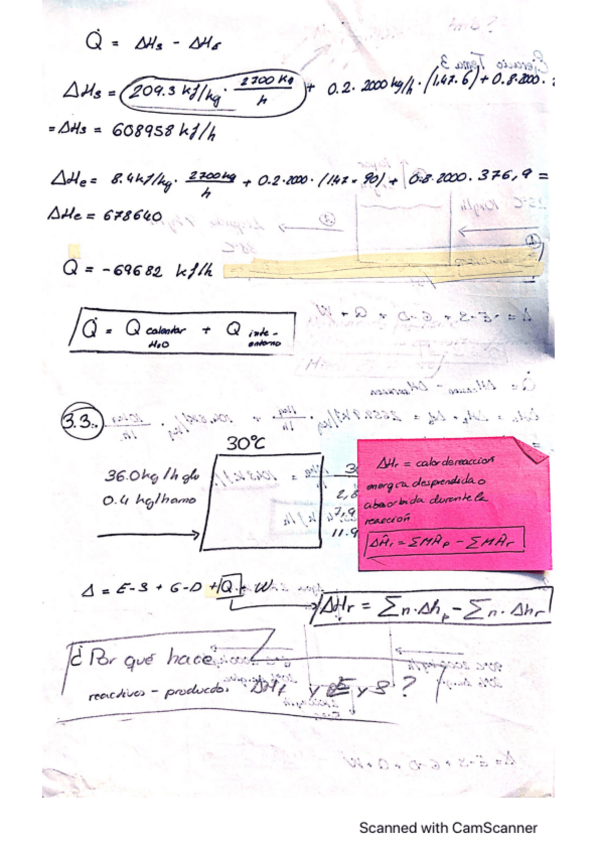 Q̇ = ΔHs - ΔHe
ΔHs = 209.3 kJ/kg · 2700 kg/h + 0.2 · 2000 kg/h · (1,47·6) + 0.8·2000 ·
= ΔHs = 608958 kJ/h
ΔHe = 8.4 kJ/kg · 2700 kg/h + 0.2·2000 · (1,47 · 90) + 0.8·2000 · 376,9 =
ΔHe = 678640
Q̇ = -69682 kJ/h
Q̇ = Q calentar H2O + Q inte- entorno
3.3.
30°C
36.0 kg/h glu
0.4 kg/h amo
ΔHr = calor de reaccion
energía desprendida o
absorbida durante la
reacción
ΔĤr = ΣMĤp - ΣMĤr
Δ = E-S + G-D + Q + W
ΔHr = Σn·Δhp - Σn·Δhr
¿Por qué hace
reactivos - productos. ΔHf y E y S?
Scanned with CamScanner